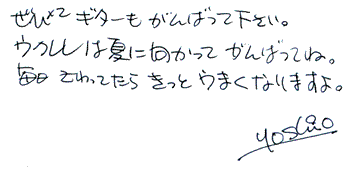 ぜひギターもがんばって下さい。
ウクレレは夏に向かってがんばってね。
毎日さわってたらきっとうまくなりますよ。
Yoshio